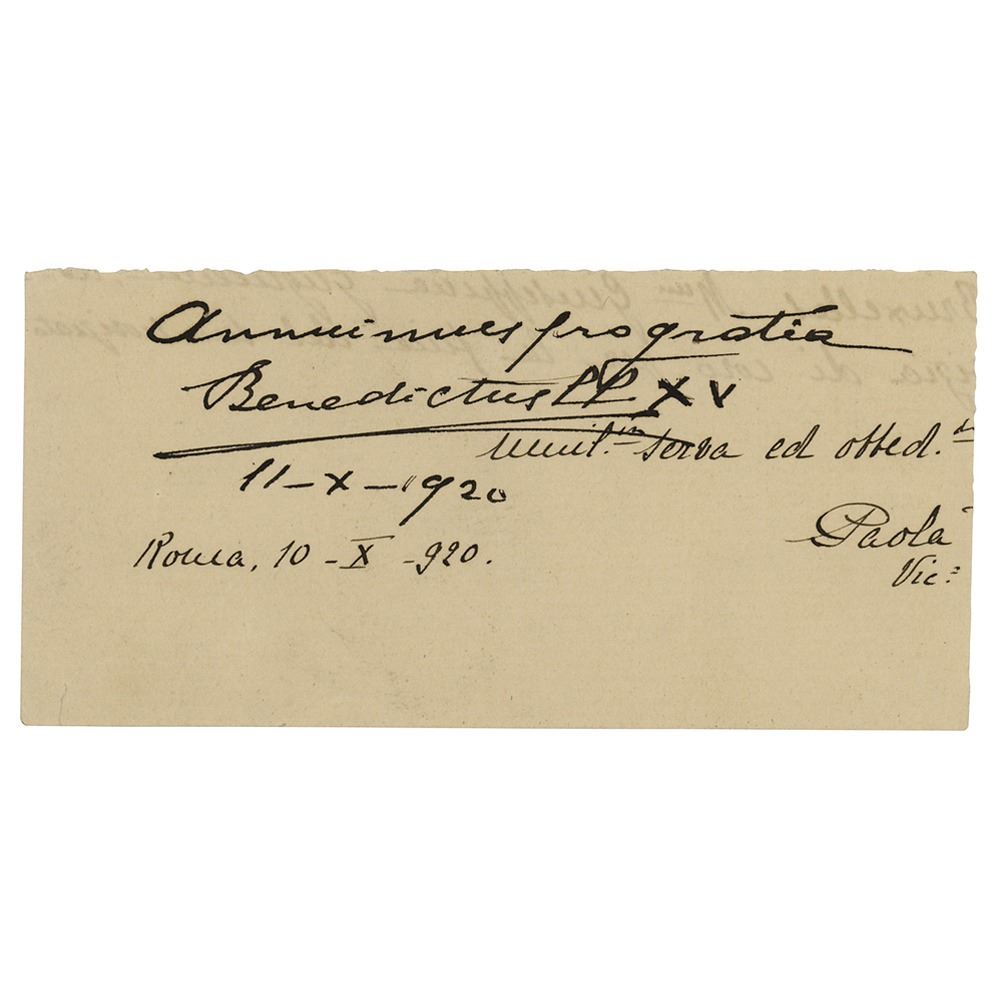 Annuimus pro gratia
Benedictus PP XV
umil.ma serva ed obbed.
11-X-1920
Roma, 10-X-920.
Paola
Vic: